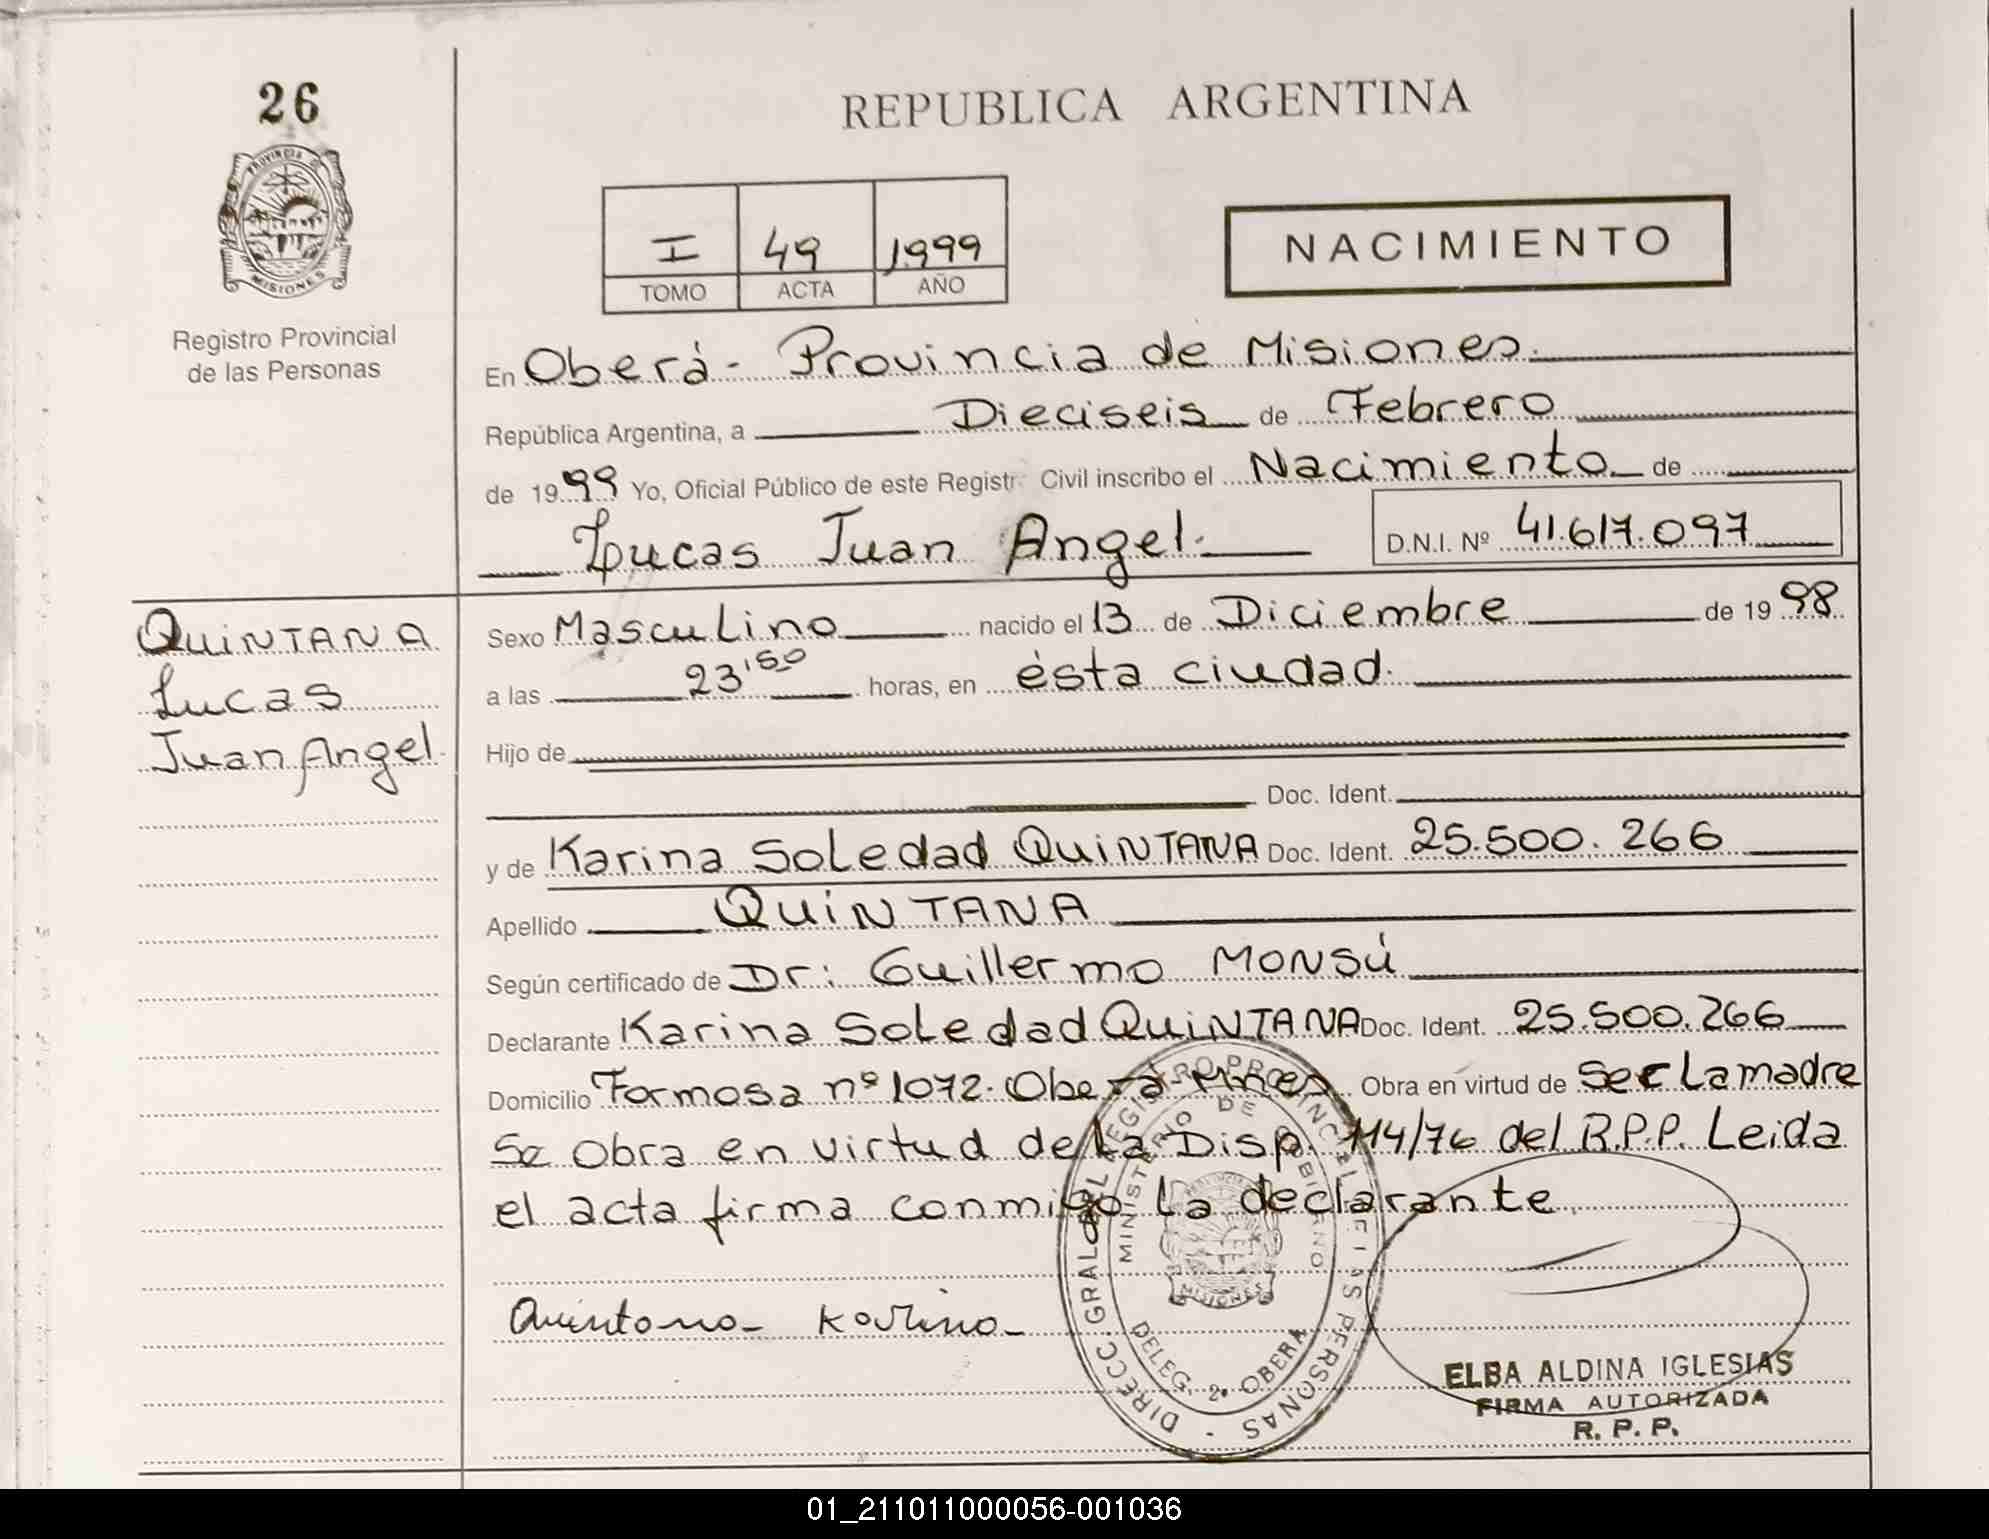 26
PROVINCIA DE
MISIONES
Registro Provincial
de las Personas
REPUBLICA ARGENTINA
I 49 1.999
TOMO ACTA AÑO
NACIMIENTO
En Oberá - Provincia de Misiones.
República Argentina, a Dieciseis de Febrero
de 1999 Yo, Oficial Público de este Registr Civil inscribo el Nacimiento de
Lucas Juan Angel. D.N.I. Nº 41.617.097
QUINTANA
Lucas
Juan Angel.
Sexo Masculino nacido el 13 de Diciembre de 1998
a las 23'50 horas, en ésta ciudad.
Hijo de
Doc. Ident.
y de Karina Soledad QUINTANA Doc. Ident. 25.500.266
Apellido QUINTANA
Según certificado de Dr: Guillermo MONSÚ
Declarante Karina Soledad QUINTANA Doc. Ident. 25.500.266
Domicilio Formosa nº 1072. Oberá - Mnes Obra en virtud de ser la madre
Se obra en virtud de la Disp. 114/76 del R.P.P. Leida
el acta firma conmigo la declarante
Quintana Karina
DIRECC. GRAL. DEL REGISTRO PROVINCIAL DE LAS PERSONAS -
MINISTERIO DE GOBIERNO
MISIONES
DELEG. 2º OBERA
ELBA ALDINA IGLESIAS
FIRMA AUTORIZADA
R. P. P.
01_211011000056-001036